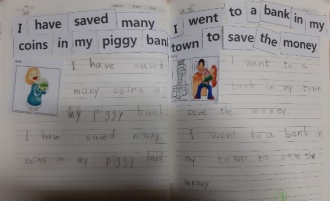 I have saved many
coins in my piggy bank
I have saved
many coins in
my piggy bank
I have saved many
coins in my piggy bank
I went to a bank in my
town to save the money
I went to a
bank in my town
save the money.
I went to a bank in
my town to save the
money